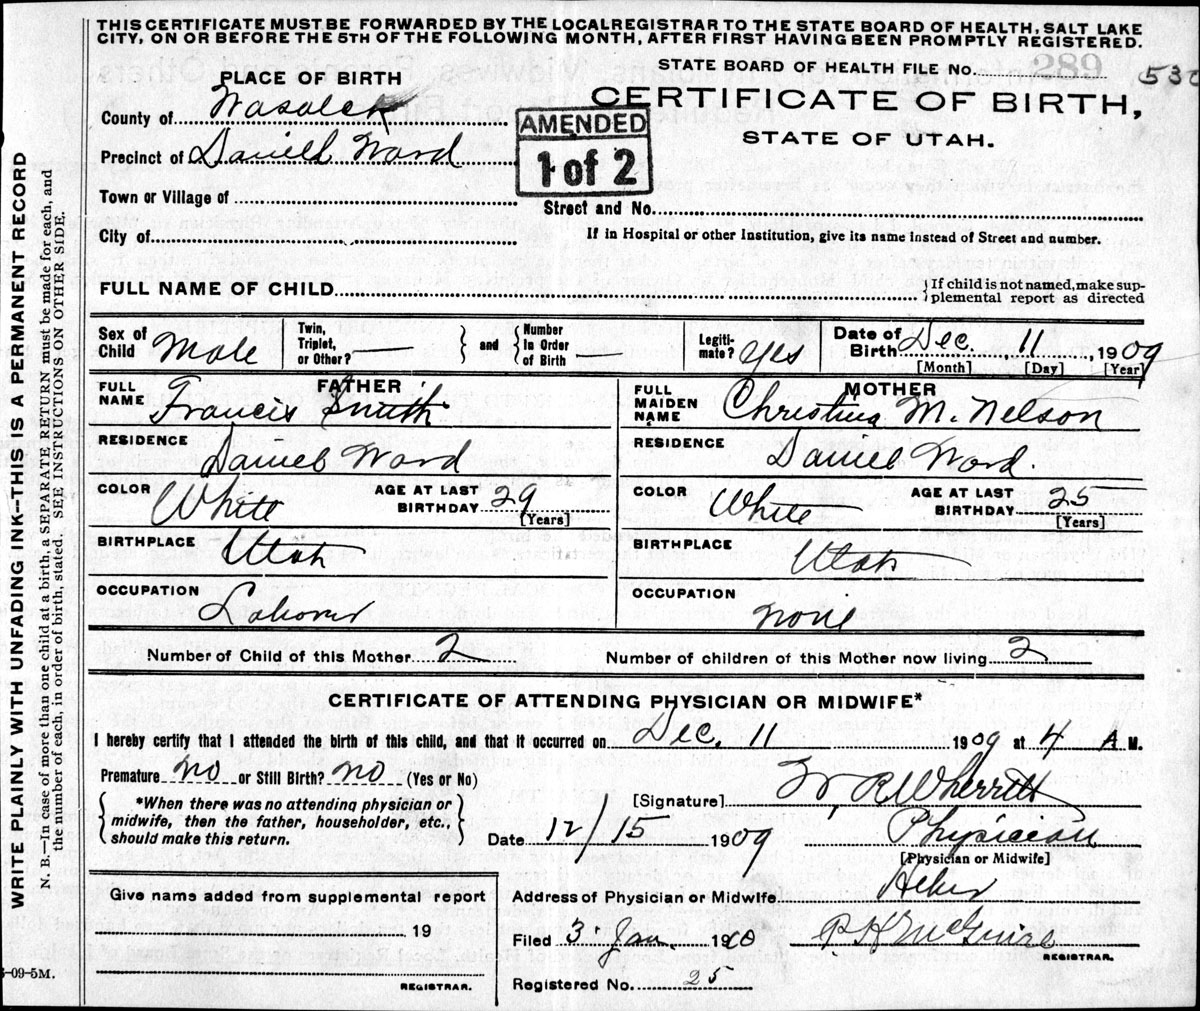 THIS CERTIFICATE MUST BE FORWARDED BY THE LOCAL REGISTRAR TO THE STATE BOARD OF HEALTH, SALT LAKE
CITY, ON OR BEFORE THE 5TH OF THE FOLLOWING MONTH, AFTER FIRST HAVING BEEN PROMPTLY REGISTERED.
STATE BOARD OF HEALTH FILE No. 289 530
PLACE OF BIRTH
CERTIFICATE OF BIRTH,
STATE OF UTAH.
County of
AMENDED
1 of 2
Precinct of Daniell Ward
Town or Village of
Street and No.
City of
If in Hospital or other Institution, give its name instead of Street and number.
FULL NAME OF CHILD
If child is not named, make sup-
plemental report as directed
Sex of Child Male
Twin, Triplet, or Other? — and Number in Order of Birth —
Legiti-mate? yes
Date of Birth Dec. 11, 1909
[Month] [Day] [Year]
FATHER
FULL NAME Francis Smith
MOTHER
FULL MAIDEN NAME Christina M. Nelson
RESIDENCE Daniel Ward
RESIDENCE Daniel Ward.
COLOR White AGE AT LAST BIRTHDAY 29 [Years]
COLOR White AGE AT LAST BIRTHDAY 25 [Years]
BIRTHPLACE Utah
BIRTHPLACE Utah
OCCUPATION Laborer
OCCUPATION None
Number of Child of this Mother 2 Number of children of this Mother now living 2
CERTIFICATE OF ATTENDING PHYSICIAN OR MIDWIFE*
I hereby certify that I attended the birth of this child, and that it occurred on Dec. 11 1909 at 4 A M.
Premature no or Still Birth? no (Yes or No)
*When there was no attending physician or
midwife, then the father, householder, etc.,
should make this return.
[Signature] W. R. Wherritt
Date 12/15 1909 Physician
[Physician or Midwife]
Give name added from supplemental report
Address of Physician or Midwife Heber
19
Filed 3 Jan. 1910
REGISTRAR.
REGISTRAR.
Registered No. 25
-09-5M.
WRITE PLAINLY WITH UNFADING INK—THIS IS A PERMANENT RECORD
N. B.—In case of more than one child at a birth, a SEPARATE RETURN must be made for each, and
the number of each, in order of birth, stated. SEE INSTRUCTIONS ON OTHER SIDE.